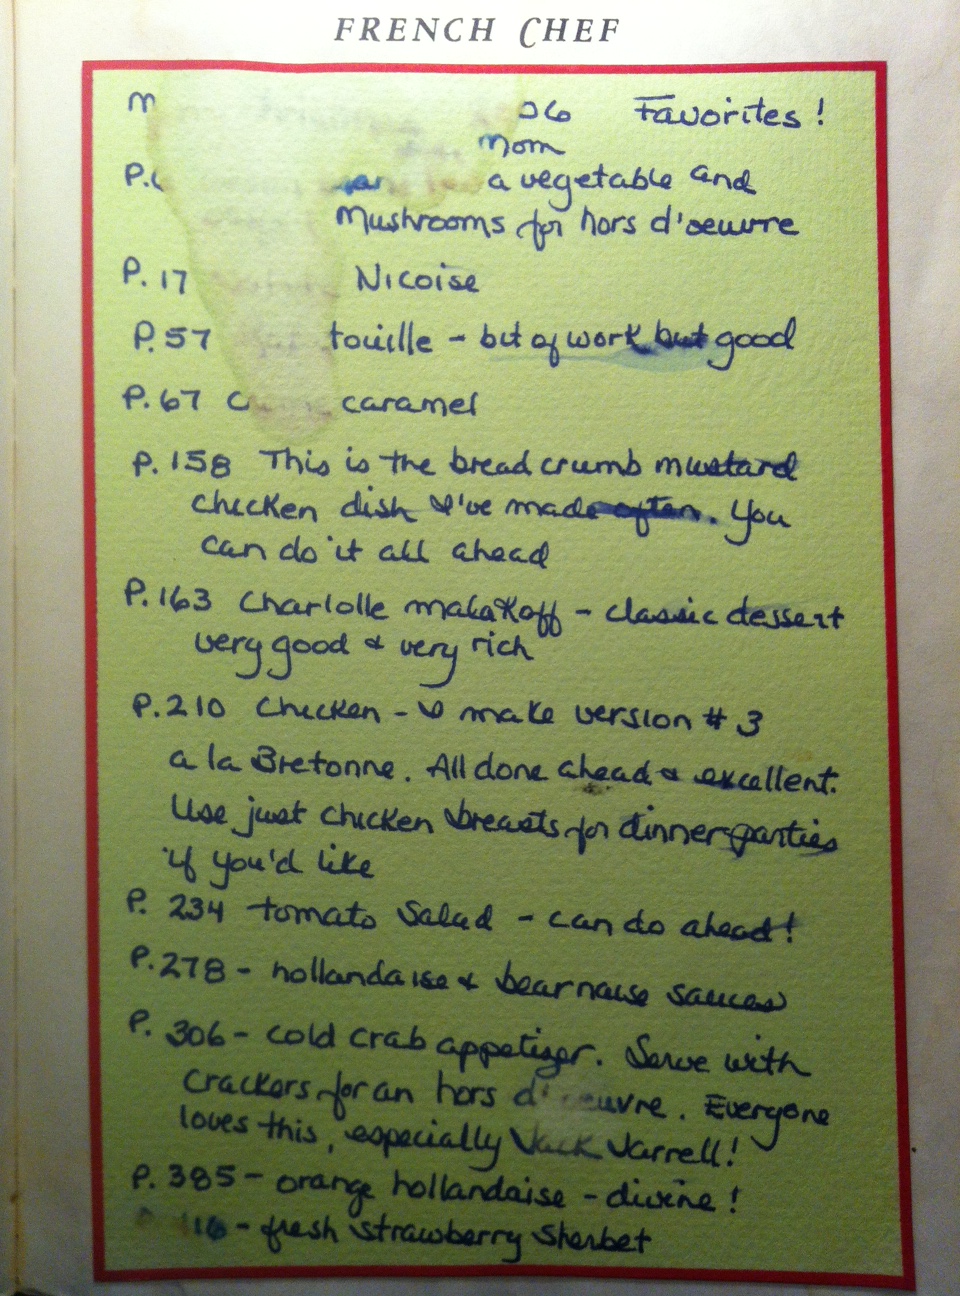 FRENCH CHEF
M 06 Favorites!
Mom
P. a vegetable and
Mushrooms for hors d'oeuvre
P. 17 Nicoise
P. 57 touille - bit of work but good
P. 67 C caramel
P. 158 This is the bread crumb mustard
chicken dish I've made often. You
can do it all ahead
P. 163 Charlotte malakoff - classic dessert
very good & very rich
P. 210 Chicken - I make version #3
a la Bretonne. All done ahead & excellent.
Use just chicken breasts for dinner parties
if you'd like
P. 234 tomato Salad - can do ahead!
P. 278 - hollandaise & bearnaise sauces
P. 306 - cold crab appetizer. Serve with
Crackers for an hors d'oeuvre. Everyone
loves this, especially Jack Jarrell!
P. 385 - orange hollandaise - divine!
16 - fresh Strawberry Sherbet